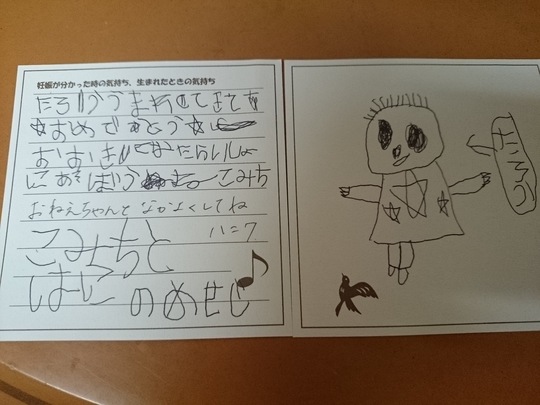 妊娠が分かった時の気持ち、生まれたときの気持ち
☆おめでとう☆
おおきくなったらいしょ
にあそぼう こみち
おねえちゃんとなかよくしてね
こみちと
はにのめせじ
たろう